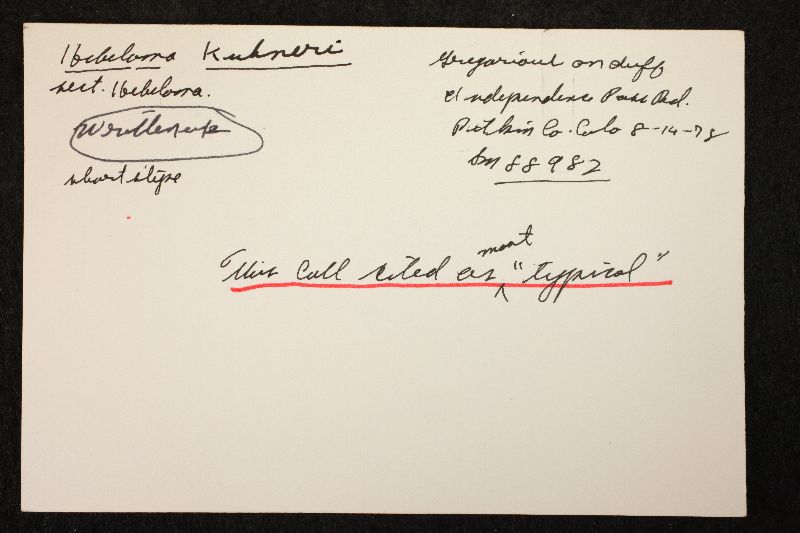 Hebeloma Kuhneri
sect. Hebeloma.
Written up
short stipe
Gregarious on duff
Independence Pass Rd.
Pitkin Co. Colo 8-14-78
Sm 88982
This Coll cited as most "typical"